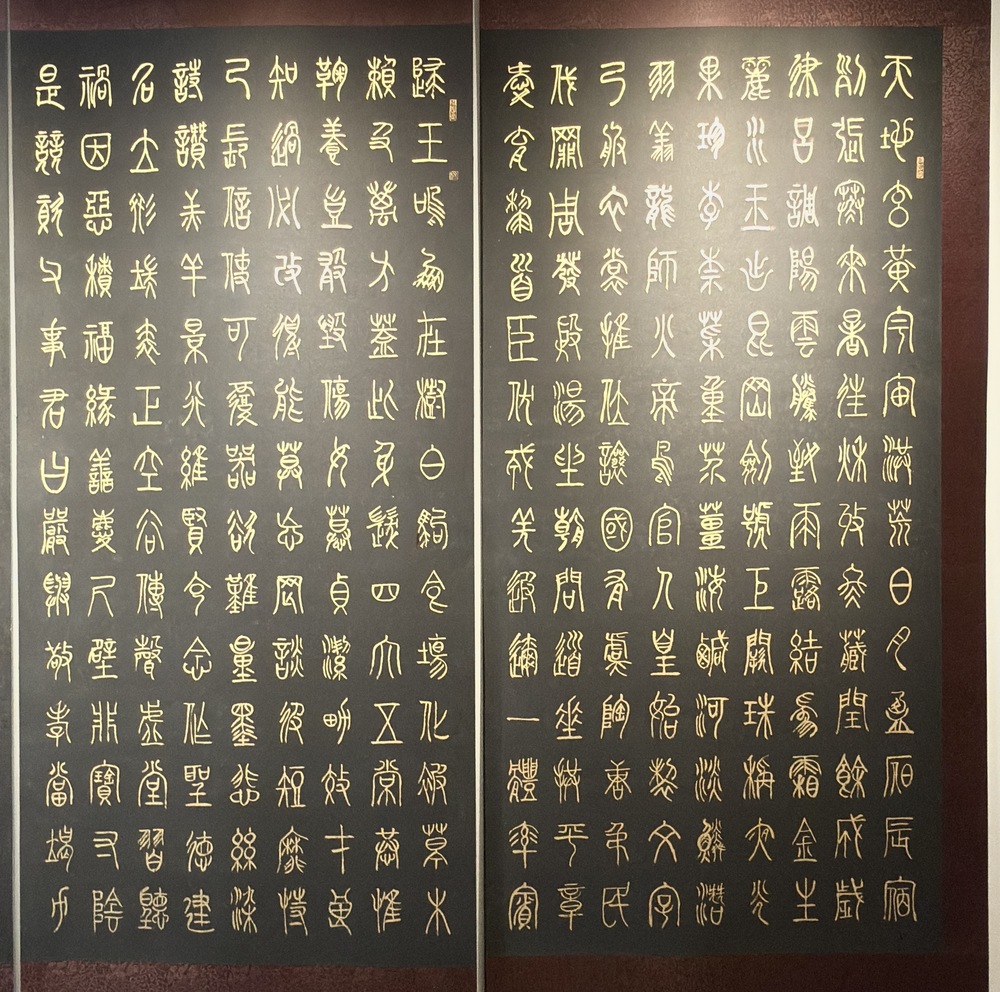 天地玄黃宇宙洪荒日月盈昃辰宿
列張寒來暑往秋收冬藏閏餘成歲
律呂調陽雲騰致雨露結為霜金生
麗水玉出昆岡劍號巨闕珠稱夜光
果珍李柰菜重芥薑海鹹河淡鱗潛
羽翔龍師火帝鳥官人皇始制文字
乃服衣裳推位讓國有虞陶唐弔民
伐罪周發殷湯坐朝問道垂拱平章
愛育黎首臣伏戎羌遐邇一體率賓
歸王鳴鳳在樹白駒食場化被草木
賴及萬方蓋此身髮四大五常恭惟
鞠養豈敢毀傷女慕貞潔男效才良
知過必改得能莫忘罔談彼短靡恃
己長信使可覆器欲難量墨悲絲染
詩讚羔羊景行維賢克念作聖德建
名立形端表正空谷傳聲虛堂習聽
禍因惡積福緣善慶尺璧非寶寸陰
是競資父事君曰嚴與敬孝當竭力